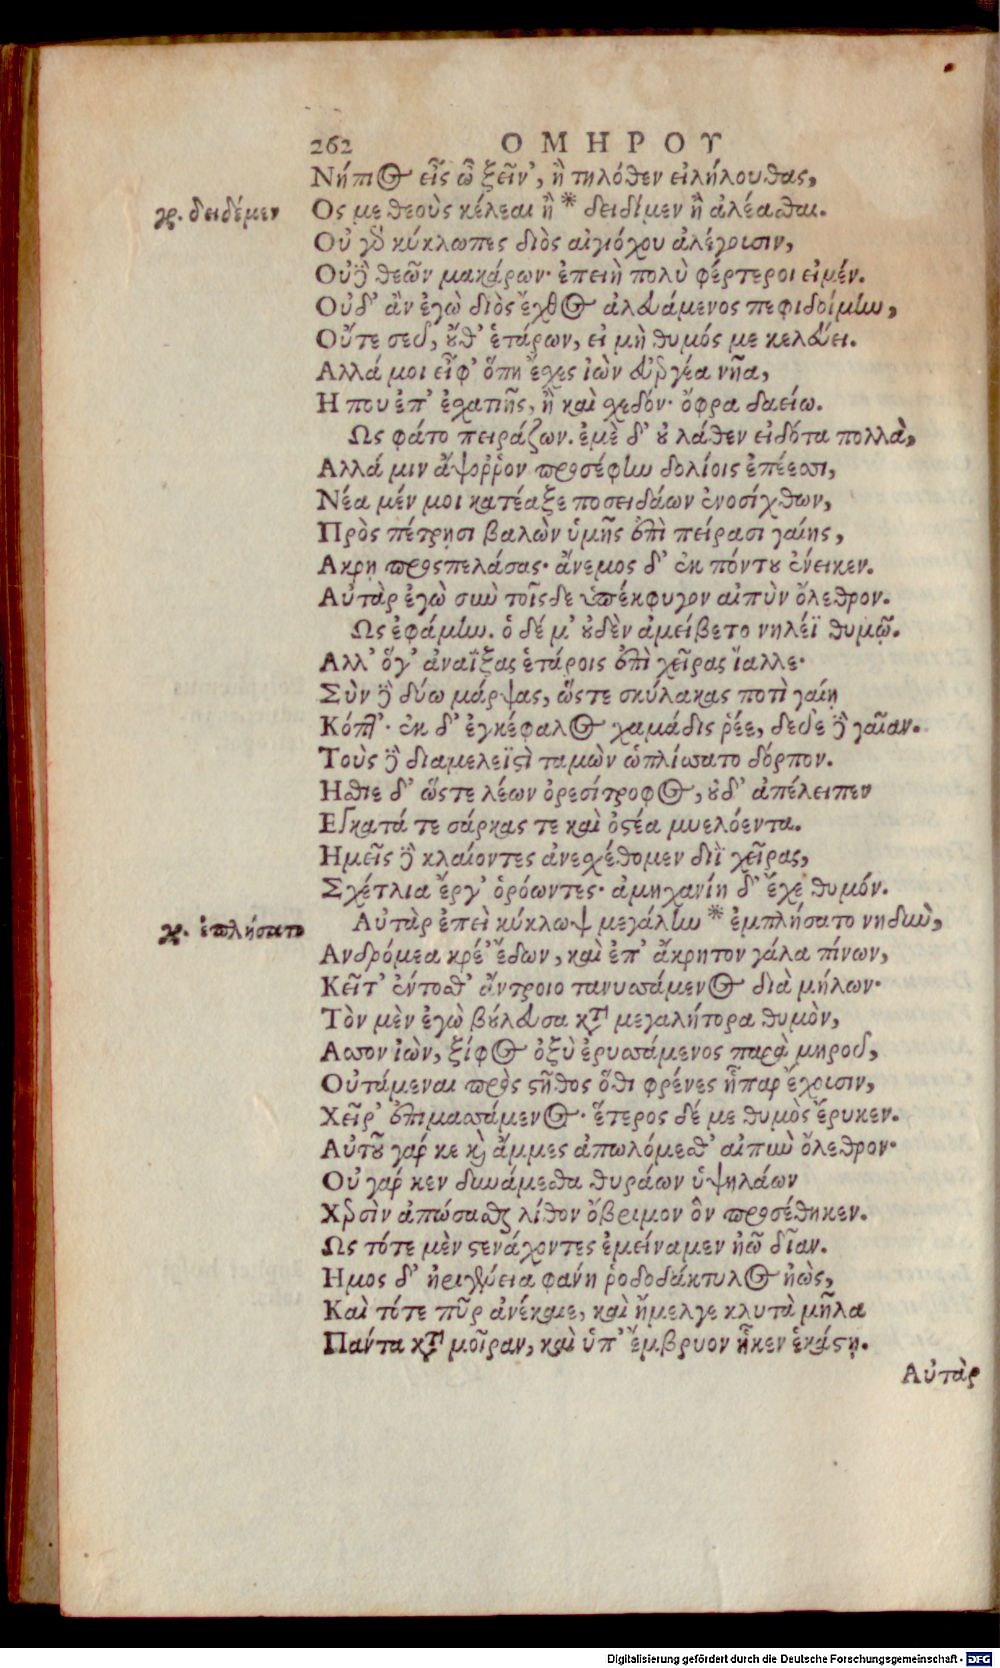 262 ΟΜΗΡΟΥ
Νήπιος εἶς ὦ ξεῖν', ἢ τηλόθεν εἰλήλουθας,
γρ. δειδέμεν
Ος με θεοὺς κέλεαι ἢ * δειδίμεν ἢ ἀλέασθαι.
Οὐ γὰρ κύκλωπες διὸς αἰγιόχου ἀλέγουσιν,
Οὐδὲ θεῶν μακάρων· ἐπειὴ πολὺ φέρτεροι εἰμέν.
Οὐδ' ἂν ἐγὼ διὸς ἔχθος ἀλευάμενος πεφιδοίμην,
Οὔτε σεῦ, οὔθ' ἑτάρων, εἰ μὴ θυμός με κελεύει.
Αλλά μοι εἶφ' ὅπη ἔχες ἰὼν εὐεργέα νῆα,
Η που ἐπ' ἐχατιῆς, ἢ καὶ χεδόν· ὄφρα δαείω.
Ως φάτο πειράζων. ἐμὲ δ' οὐ λάθεν εἰδότα πολλὰ,
Αλλά μιν ἄψοῤῥον προσέφην δολίοις ἐπέεσσι,
Νέα μέν μοι κατέαξε ποσειδάων ἐνοσίχθων,
Πρὸς πέτρῃσι βαλὼν ὑμῆς ἐπὶ πείρασι γαίης,
Ακρῃ προςπελάσας· ἄνεμος δ' ἐκ πόντου ἔνεικεν.
Αὐτὰρ ἐγὼ σὺν τοῖςδε ὑπέκφυγον αἰπὺν ὄλεθρον.
Ως ἐφάμην. ὁ δέ μ' οὐδὲν ἀμείβετο νηλέϊ θυμῷ.
Αλλ' ὅγ' ἀναΐξας ἑτάροις ἐπὶ χεῖρας ἴαλλε·
Σὺν δὲ δύω μάρψας, ὥστε σκύλακας ποτὶ γαίῃ
Κόπτ'· ἐκ δ' ἐγκέφαλος χαμάδις ῥέε, δεῦε δὲ γαῖαν.
Τοὺς δὲ διαμελεϊστὶ ταμὼν ὡπλίσσατο δόρπον.
Ησθιε δ' ὥστε λέων ὀρεσίτροφος, οὐδ' ἀπέλειπεν
Εγκατά τε σάρκας τε καὶ ὀστέα μυελόεντα.
Ημεῖς δὲ κλαίοντες ἀνεχέθομεν διῒ χεῖρας,
Σχέτλια ἔργ' ὁρόωντες· ἀμηχανίη δ' ἔχε θυμόν.
γρ. ἐπλήσατο
Αὐτὰρ ἐπεὶ κύκλωψ μεγάλην * ἐμπλήσατο νηδὺν,
Ανδρόμεα κρέ' ἔδων, καὶ ἐπ' ἄκρητον γάλα πίνων,
Κεῖτ' ἔντοσθ' ἄντροιο τανυσσάμενος διὰ μήλων·
Τὸν μὲν ἐγὼ βούλευσα κατὰ μεγαλήτορα θυμὸν,
Ασσον ἰὼν, ξίφος ὀξὺ ἐρυσσάμενος παρὰ μηροῦ,
Οὐτάμεναι πρὸς στῆθος ὅθι φρένες ἧπαρ ἔχουσιν,
Χεῖρ' ἐπιμασσάμενος· ἕτερος δέ με θυμὸς ἔρυκεν.
Αὐτοῦ γάρ κε καὶ ἄμμες ἀπωλόμεθ' αἰπὺν ὄλεθρον·
Οὐ γάρ κεν δυνάμεσθα θυράων ὑψηλάων
Χερσὶν ἀπώσασθαι λίθον ὄβριμον ὃν προσέθηκεν.
Ως τότε μὲν στενάχοντες ἐμείναμεν ἠῶ δῖαν.
Ημος δ' ἠριγένεια φάνη ῥοδοδάκτυλος ἠὼς,
Καὶ τότε πῦρ ἀνέκαιε, καὶ ἤμελγε κλυτὰ μῆλα
Πάντα κατὰ μοῖραν, καὶ ὑπ' ἔμβρυον ἧκεν ἑκάστῃ.
Αὐτὰρ
Digitalisierung gefördert durch die Deutsche Forschungsgemeinschaft - DFG